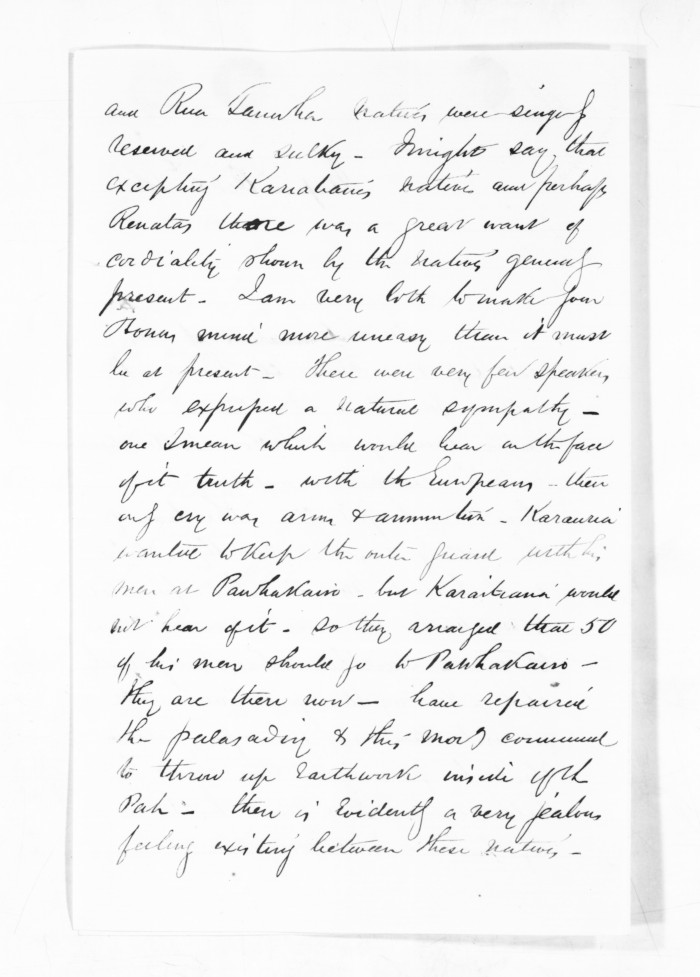 and Rua Tauwha natives were singly
reserved and sulky - I might say that
excepting Karaitiana's natives and perhaps
Renatas there was a great want of
cordiality shown by the natives generally
present - I am very loth to make your
Honors mind more uneasy than it must
be at present - There were very few speakers
who expressed a natural sympathy -
one I mean which would bear on the face
of it truth - with the Europeans - their
only cry was arms & ammunition - Karauria
wanted to keep the outer guard with his
men at Pawhakairo - but Karaitiana would
not hear of it - so they arranged that 50
of his men should go to Pawhakairo -
they are there now - have repaired
the palasading & this mor'g commenced
to throw up Earthwork inside of the
Pah - there is Evidently a very jealous
feeling existing between these natives -